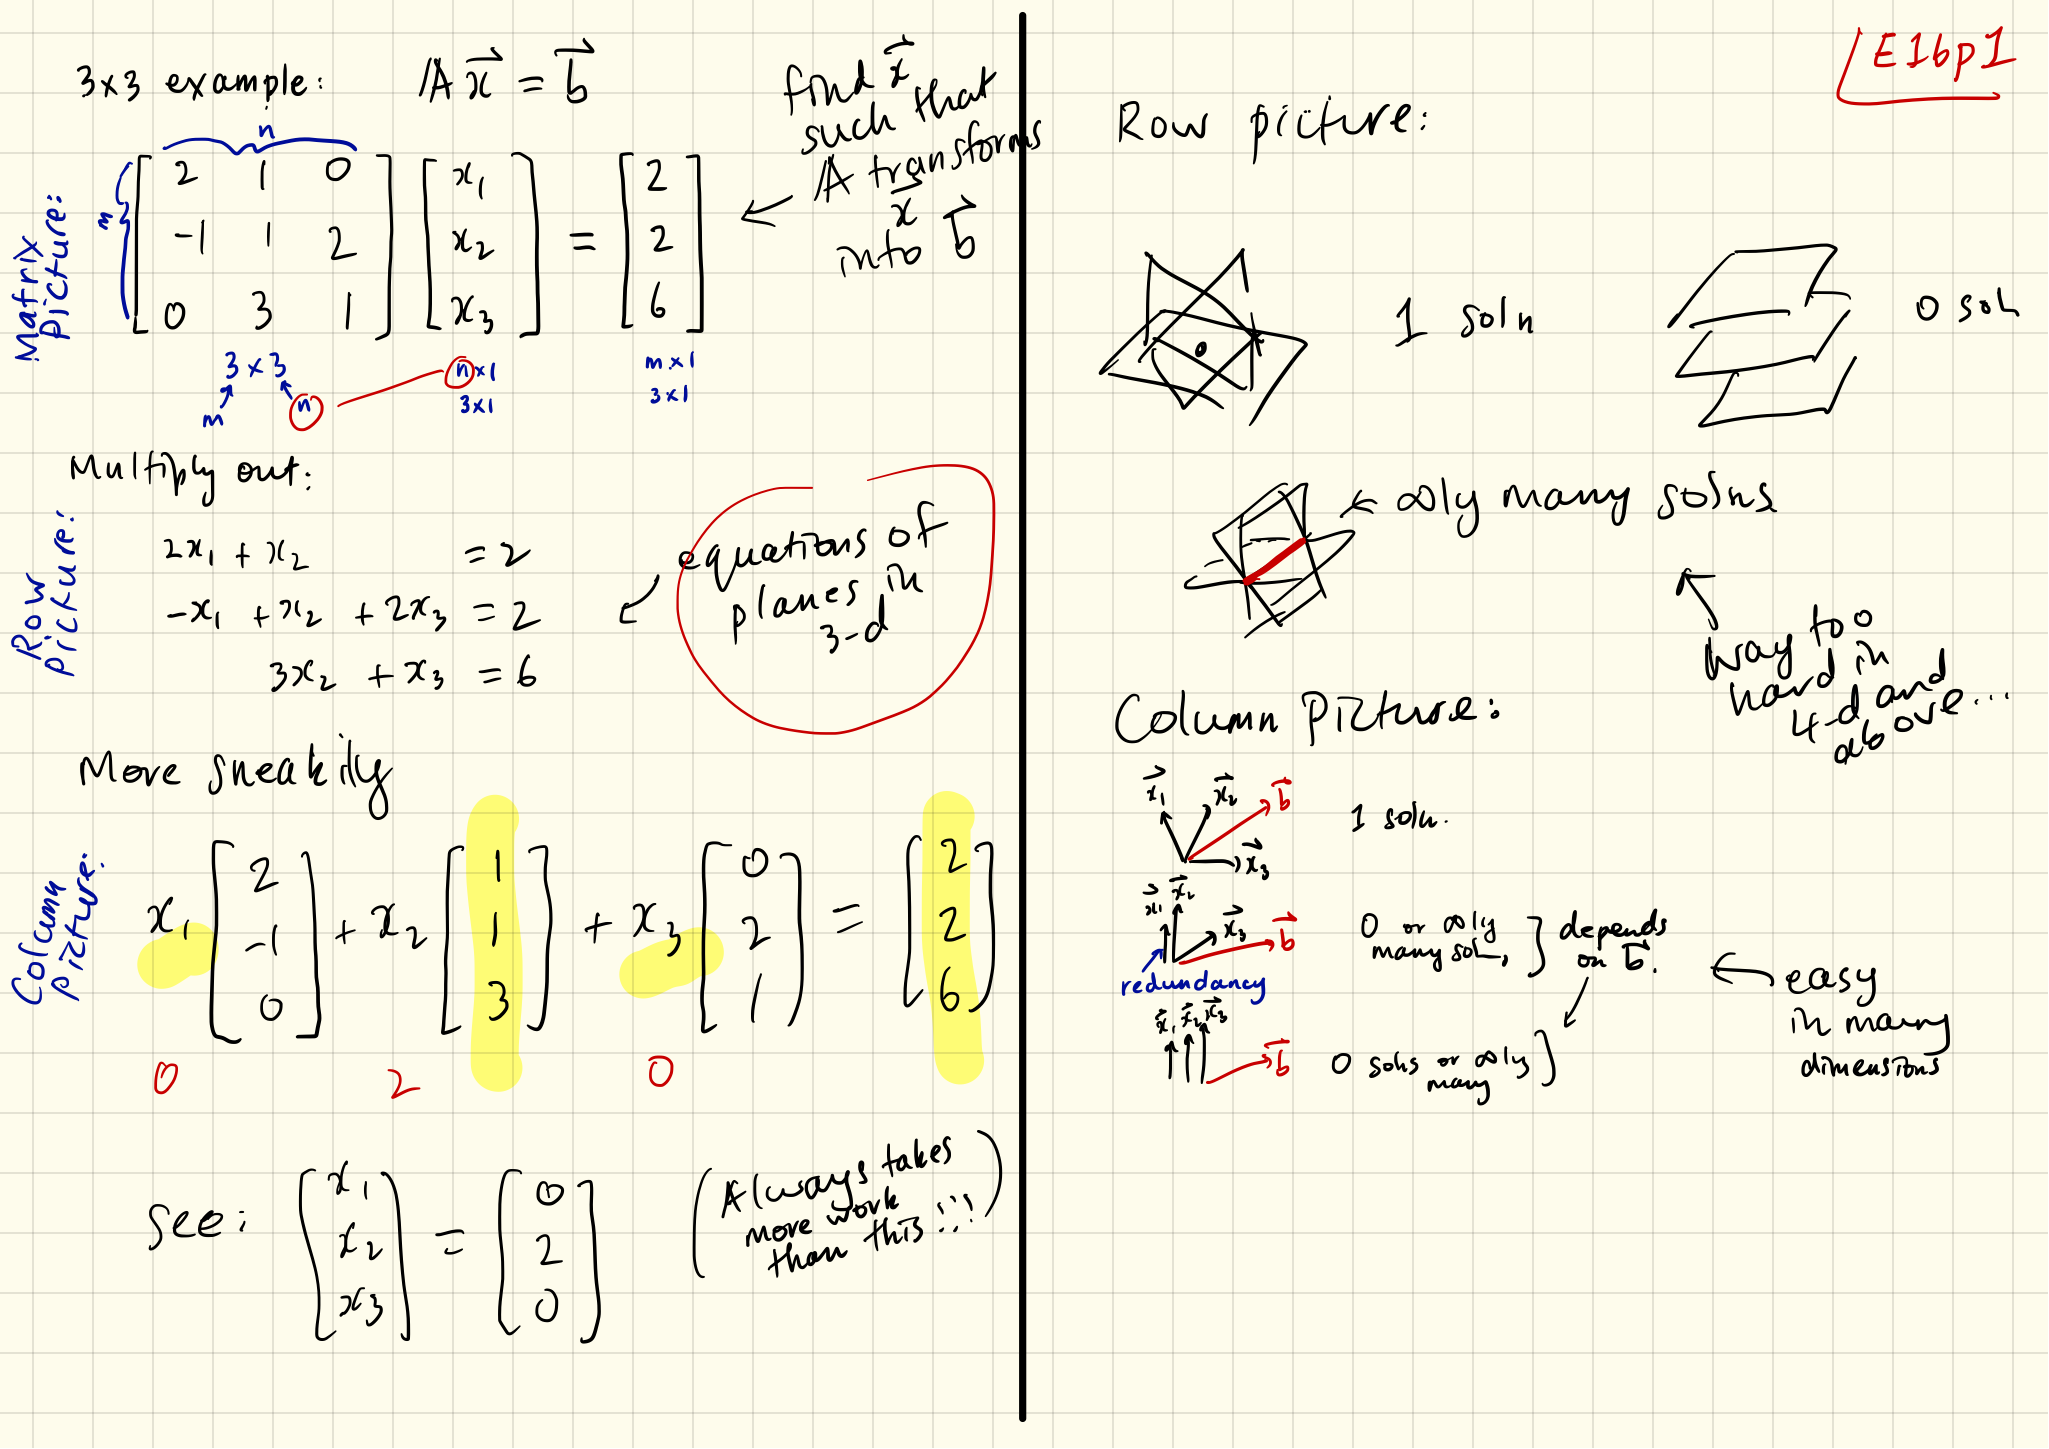 E16p1
3x3 example: A x = b
find x
such that
A transforms
x
into b
Matrix
Picture:
n
m
[ 2 1 0 ] [ x1 ] = [ 2 ]
[ -1 1 2 ] [ x2 ] = [ 2 ]
[ 0 3 1 ] [ x3 ] [ 6 ]
3x3 n x 1 m x 1
m n 3x1 3x1
Multiply out:
Row
Picture:
2x1 + x2 = 2
-x1 + x2 + 2x3 = 2
3x2 + x3 = 6
equations of
planes in
3-d
More sneakily
Column
Picture:
x1 [ 2 -1 0 ] + x2 [ 1 1 3 ] + x3 [ 0 2 1 ] = [ 2 2 6 ]
0 2 0
See: [ x1 x2 x3 ] = [ 0 2 0 ]
(Always takes
more work
than this!!!)
Row picture:
1 soln
0 soln
∞ly many solns
way too
hard in
4-d and
above...
Column Picture:
x1 x2 b
x3
1 soln.
x1 x2
x3 b
redundancy
0 or ∞ly
many soln,
depends
on b.
x1 x2 x3
b
0 solns or ∞ly
many
easy
in many
dimensions